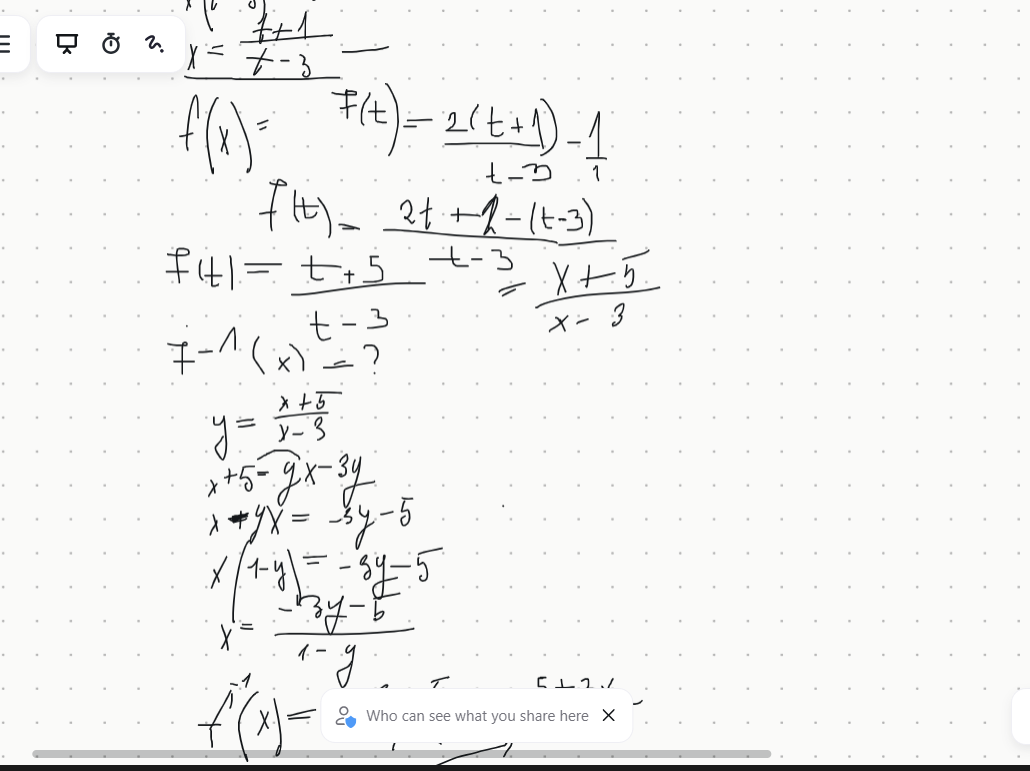 x = t+1 / t-3
f(x) = F(t) = 2(t+1) / t-3 - 1/1
f(t) = 2t + 2 - (t-3) / t-3
F(t) = t+5 / t-3 = x+5 / x-3
F^-1 (x) = ?
y = x+5 / x-3
x+5 = yx-3y
x - yx = -3y-5
x(1-y) = -3y-5
x = -3y-5 / 1-y
f^-1(x) =
Who can see what you share here